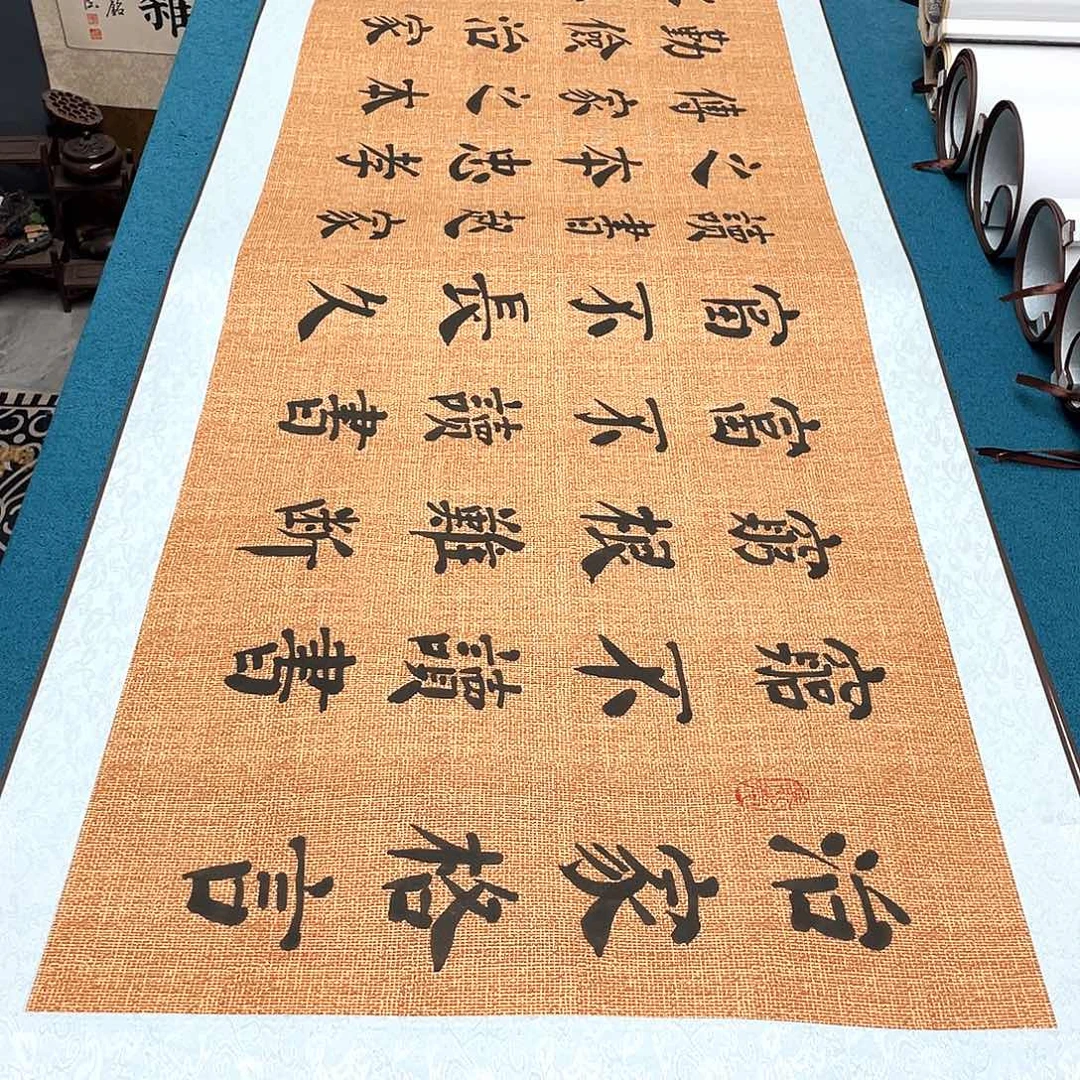 治家格言
窮不讀書
窮根難斷
富不讀書
富不長久
讀書起家
之本忠孝
傳家之本
勤儉治家